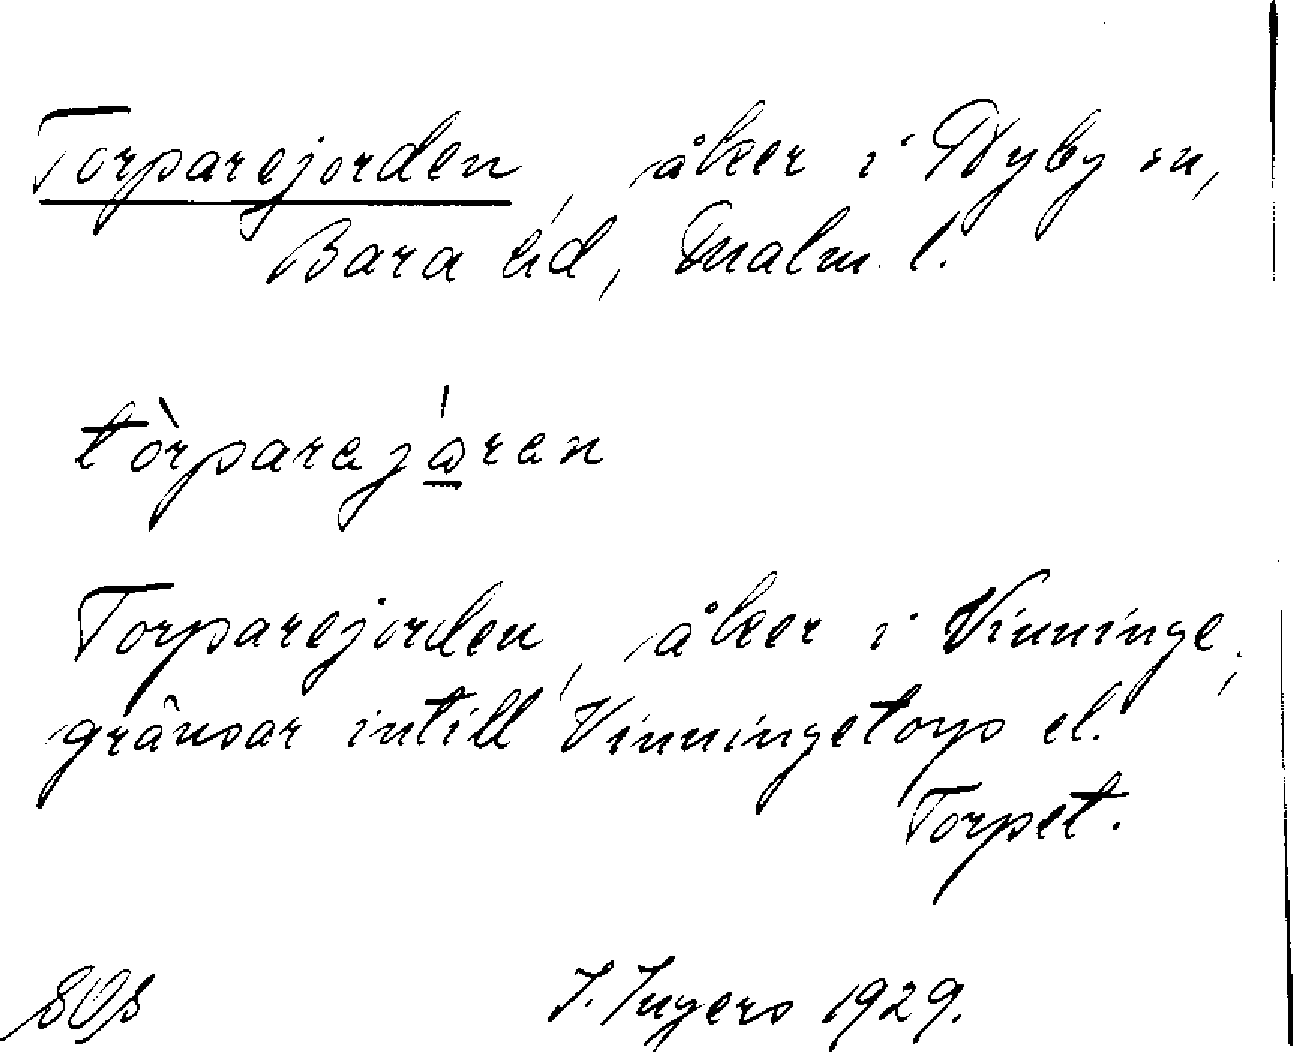 Torparejorden, åker i Dyby sn,
Bara hd, Malm. l.
tòrparejǻren
Torparejorden, åker i Vinninge,
gränsar intill Vinningetorps el.
Torpet.
I. Ingers 1929.